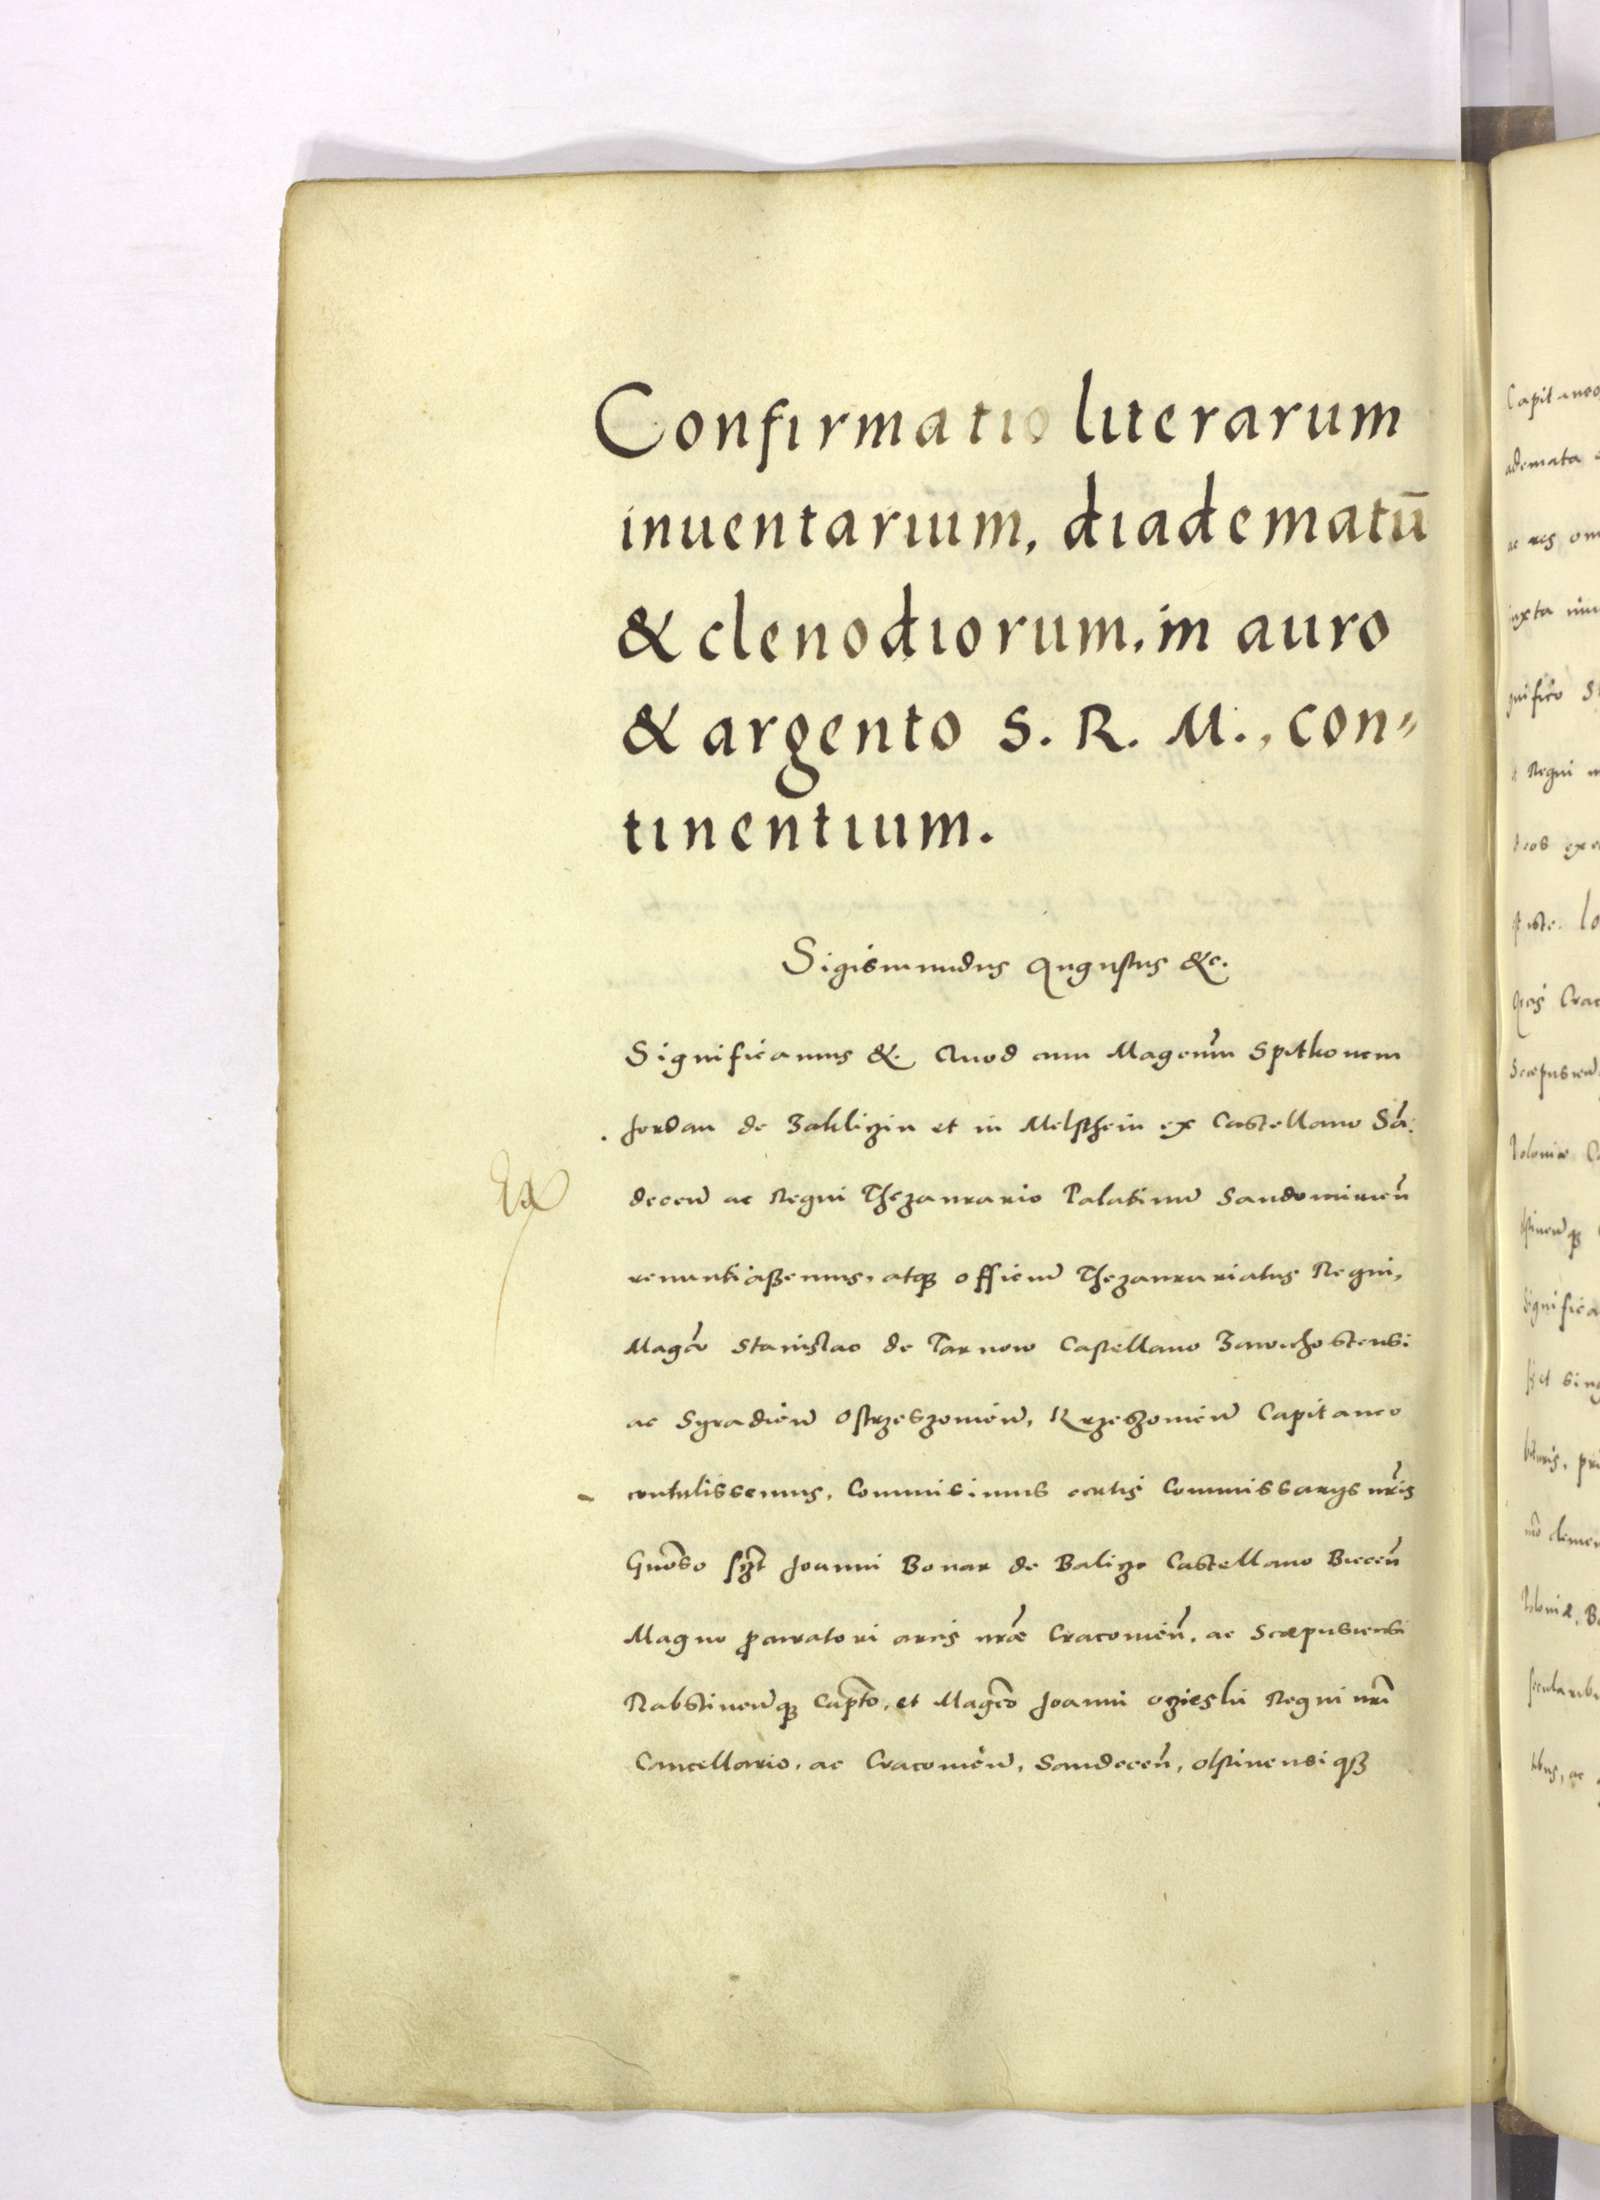 Confirmatio literarum
inuentarium, diadematū
& clenodiorum, in auro
& argento S. R. M., con=
tinentium.
Sigismundus Augustus &c.
Significamus &. Quod cum Magcum Spitkonem
Jordan de Zakliczin et in Melsthein ex Castellano Sā:
deceñ ac Regni Thezaurario Palatinū Sandomirieñ
renuntiassemus, atqȝ officiū Thezaurariatus Regni,
Magco Stanislao de Tarnow Castellano Zawichostensi
ac Syradieñ Ostrzeszouieñ, Krzeszouieñ Capitaneo
contulissemus, Commisimus certis Commissarys nr̃is
Gnoso Joanni Bonar de Balicze Castellano Bieceñ
Magno procuratori arcis nr̃æ Cracouieñ, ac Scæpusiensi
Rabstineñqȝ Capto, et Magco Joanni oczieski Regni nr̃i
Cancellario, ac Cracouieñ, Sandeceñ, olstinensiqȝ
Capitaneo
ademata
ac res
iuxta
Regni
Scæpusieñ
Poloniæ